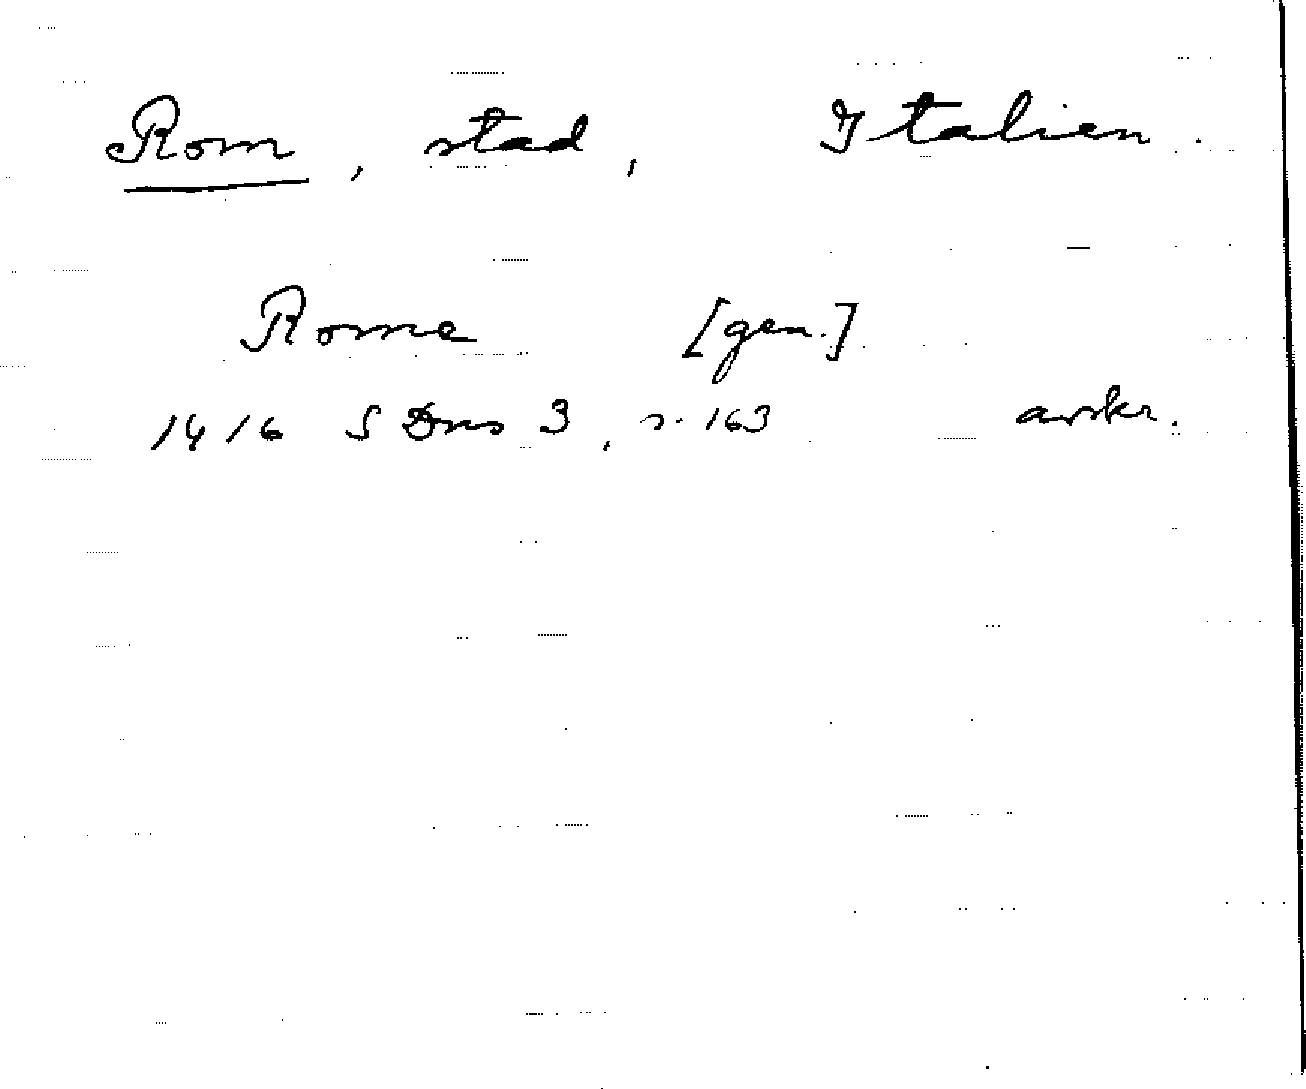 Rom, stad, Italien.
Rome [gen.]
1416 SDns 3, s. 163 avskr.